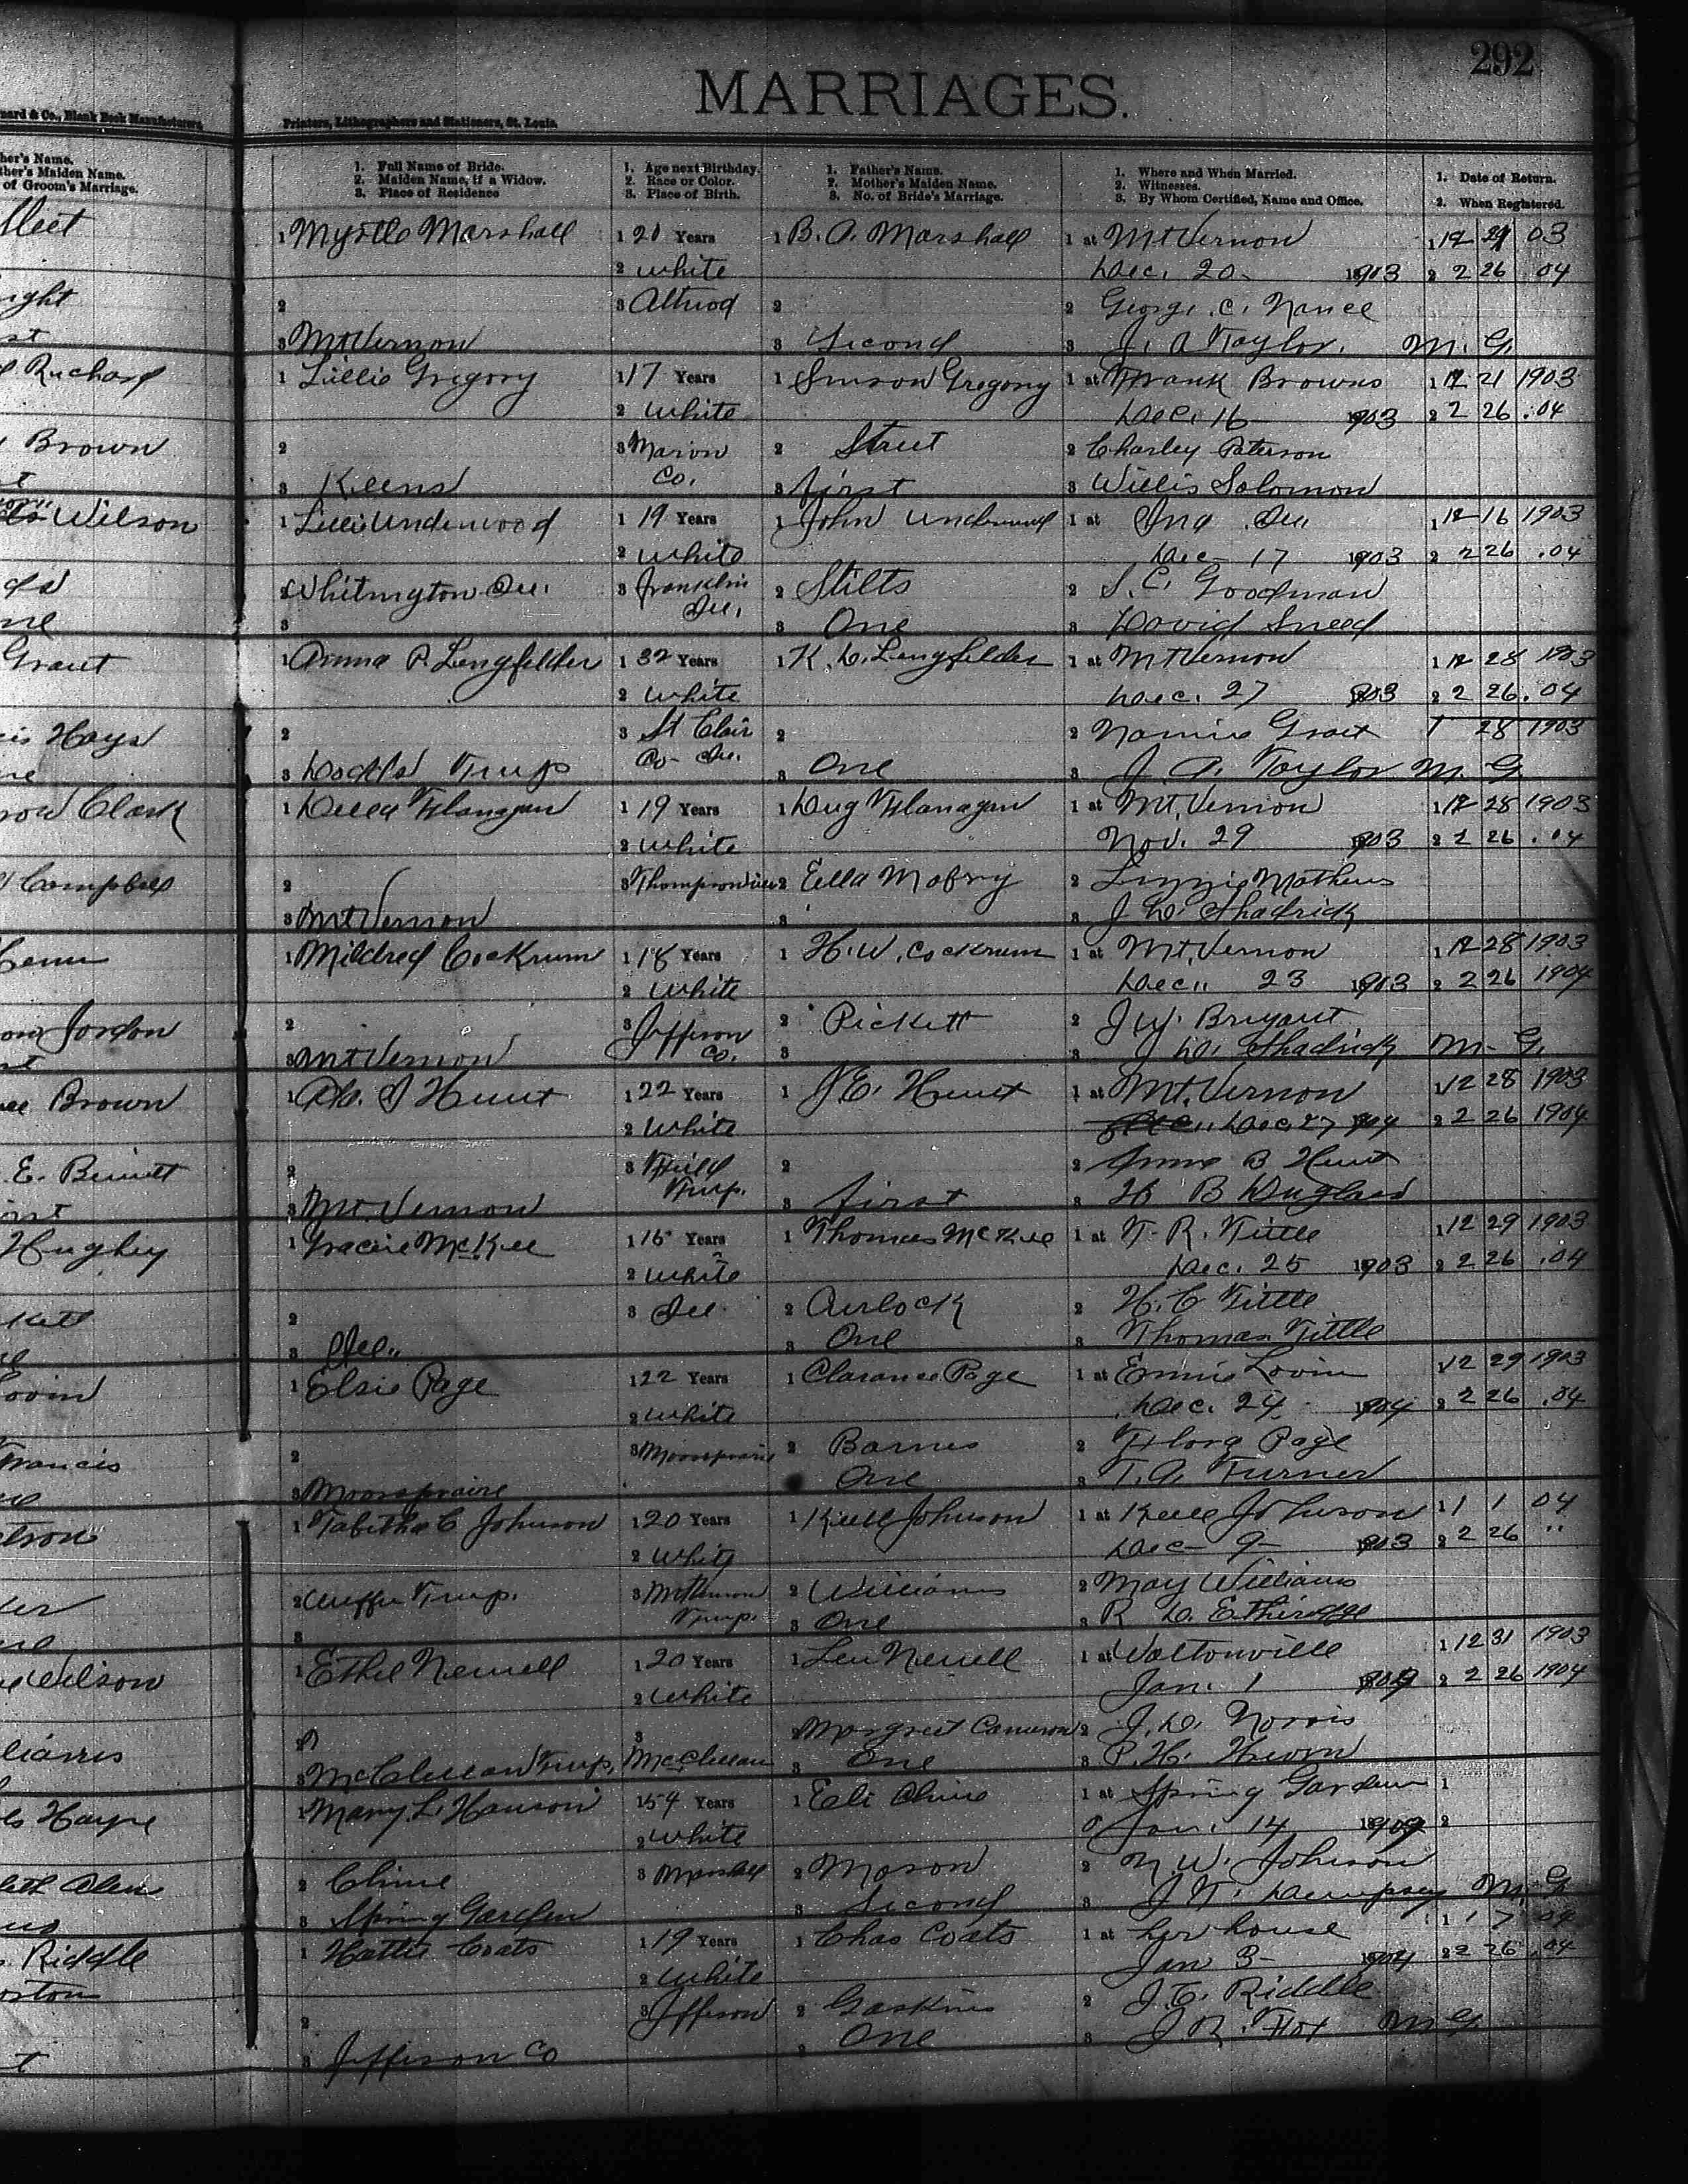 292
MARRIAGES.
nard & Co., Blank Book Manufacturers, Printers, Lithographers and Stationers, St. Louis.
her's Name.
ther's Maiden Name.
of Groom's Marriage.
1. Full Name of Bride.
2. Maiden Name, if a Widow.
3. Place of Residence
1. Age next Birthday.
2. Race or Color.
3. Place of Birth.
1. Father's Name.
2. Mother's Maiden Name.
3. No. of Bride's Marriage.
1. Where and When Married.
2. Witnesses.
3. By Whom Certified, Name and Office.
1. Date of Return.
2. When Registered.
1 Myrtle Marshall 1 20 Years 1 B. A. Marshall 1 at Mt Vernon 1 12 29 03
2 White Dec. 20 1903 2 2 26 .04
ight 2 3 2 2 George. C. Nance
st 3 Mt Vernon 3 Second 3 J. A Taylor. M. G.
Richard 1 Lillie Gregory 1 17 Years 1 Gregory 1 at Frank Browns 1 12 21 1903
2 White Dec. 16 1903 2 2 26 .04
Brown 2 3 Marion 2 Street 2 Charley Paterson
st Co.
3 Keens 3 first 3 Willis Solomon
Wilson 1 Lilli Underwood 1 19 Years 1 John Underwood 1 at Ina Ill 1 12 16 1903
2 White Dec - 17 1903 2 2 26 .04
ds 2 Whitington Ill. 3 Franklin 2 Stilts 2 S. C. Goodman
Ill.
ne 3 3 One 3 David Sneed
Grant 1 Anna P. Lengfelder 1 32 Years 1 K. D. Lengfelder 1 at Mt Vernon 1 12 28 1903
2 White Dec. 27 1903 2 2 26 .04
is Hays 2 3 St Clair 2 2 Nannie Grant 1 28 1903
Co - Ill.
ne 3 Dodds Twp 3 One 3 J. A. Taylor M. G
row Clark 1 Della Flanagan 1 19 Years 1 Dug Flanagan 1 at Mt. Vernon 1 12 28 1903
2 White Nov. 29 1903 2 2 26 .04
Campbell 2 3 Thompsonville 2 Ella Mobry 2 Lizzie Mathews
3 Mt Vernon 3 3 J. D. Shadrick
1 Mildred Cockrum 1 18 Years 1 H. W. Cockrum 1 at Mt. Vernon 1 12 28 1903
2 White Dec 23 1903 2 2 26 1904
Jordon 2 3 Jefferson 2 Pickett 2 J W. Bryant
Co.
st 3 Mt Vernon 3 3 J. D. Shadrick M. G.
Brown 1 Hunt 1 22 Years 1 J E. Hunt 1 at Mt. Vernon 1 12 28 1903
2 White Dec. 27 1904 2 2 26 1904
E. 2 3 Field 2 2 B Hunt
Twp.
irst 3 Mt. Vernon 3 first 3 B Duglass
Hughey 1 Gracie McKee 1 16 Years 1 Thomas McKee 1 at T. R. Tittle 1 12 29 1903
2 White Dec. 25 1903 2 2 26 .04
kett 2 3 Ill. 2 Aerlock 2 H. C Tittle
3 Ill. 3 One 3 Thomas Tittle
Lovin 1 Elsie Page 1 22 Years 1 Clarance Page 1 at Ennis Lovin 1 12 29 1903
2 White Dec. 24 1904 2 2 26 .04
Francis 2 3 Moorsprairie 2 Barnes 2 Flora Page
3 Moorsprairie 3 One 3 T. A. Turner
1 Tabitha C Johnson 1 20 Years 1 Kell Johnson 1 at Kell Johnson 1 1 1 04
2 White Dec - 9 - 1903 2 2 26 "
2 Twp. 3 Mt Vernon 2 Williams 2 May Williams
Twp.
3 3 One 3 R. D. Etheridge
Wilson 1 Ethel Newell 1 20 Years 1 Len Newell 1 at Waltonville 1 12 31 1903
2 White Jan. 1 1904 2 2 26 1904
liams 2 3 2 Margreet Cameron 2 J. D. Norris
3 McClellan Twp. McClellan 3 One 3 P. H.
Hayne 1 Mary L. Hanson 1 54 Years 1 Eli Cline 1 at Spring Garden 1
2 White Jan. 14 1904 2
2 Cline 3 Marshall 2 Mason 2 N. W. Johnson
3 Spring Garden 3 Second 3 J. T. Dempsey M. G
Riddle 1 Hattie Coats 1 19 Years 1 Chas Coats 1 at her house 1 1 7 04
2 White Jan 3 - 1904 2 2 26 .04
2 3 Jefferson 2 Gaskins 2 J. C. Riddle
3 Jefferson Co 3 One 3 J. R. Fox M G